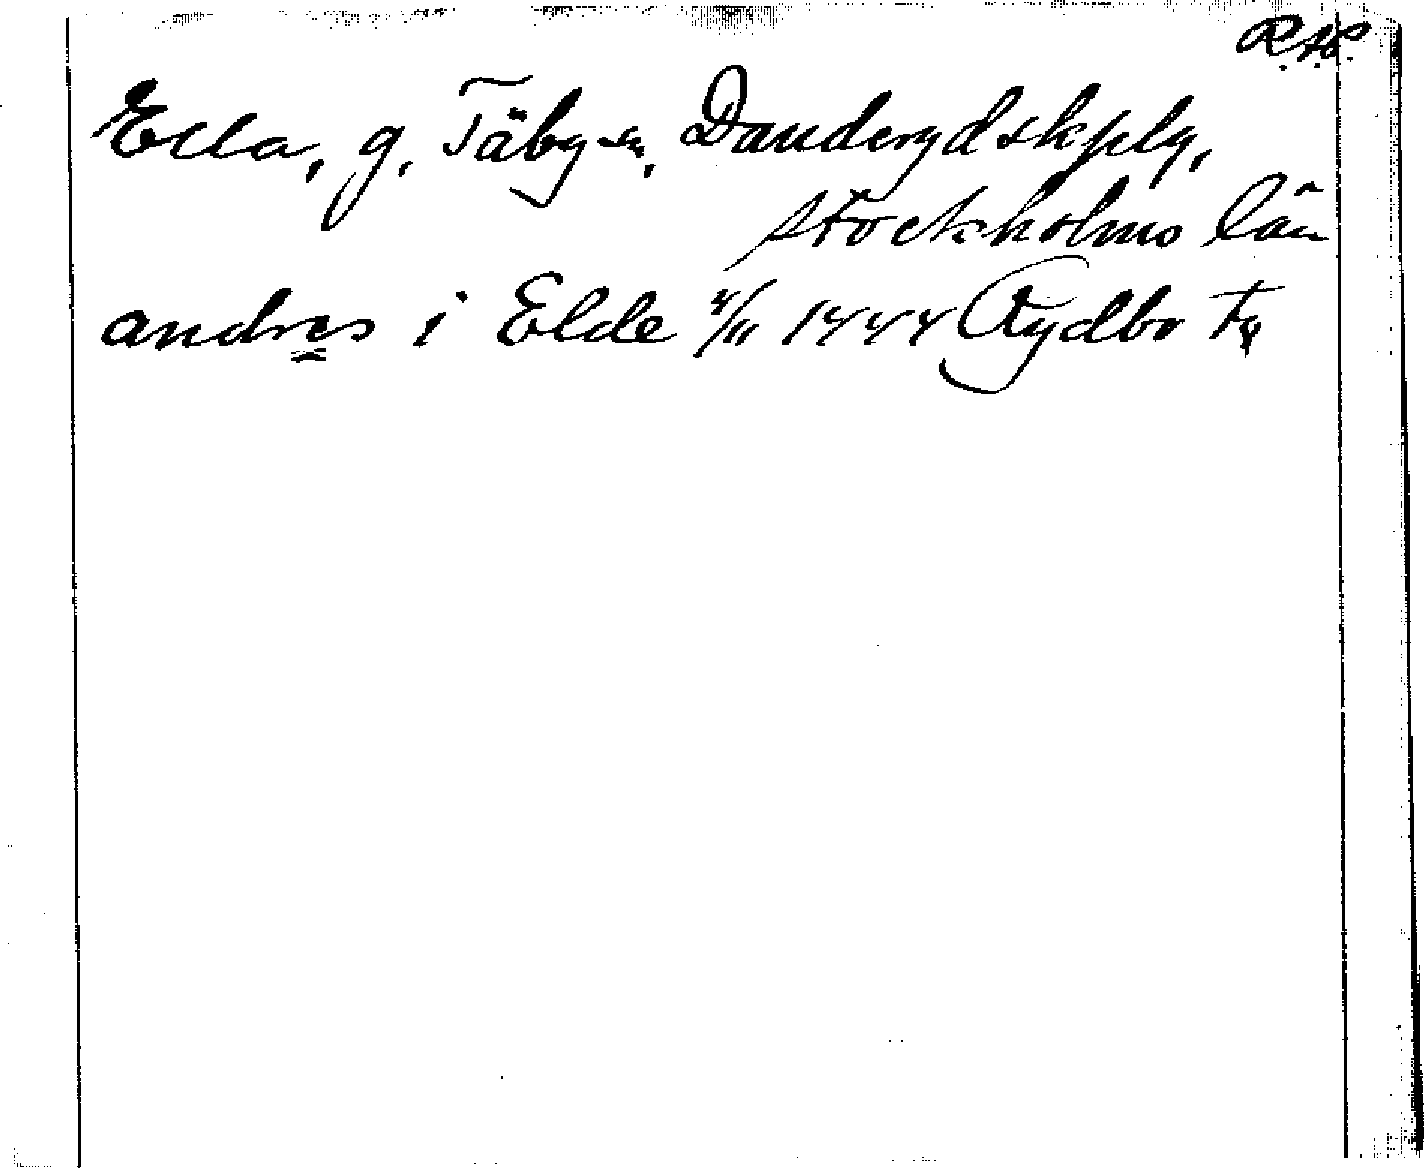 R.A.
Ella, g. Täby sn, Danderyd skplg,
Stockholms län
andres i Elde 4/11 1444 Rydbo